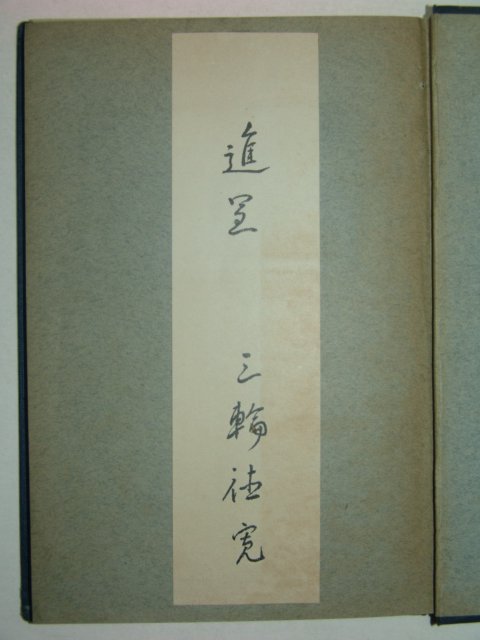 進呈　三輪徳寛